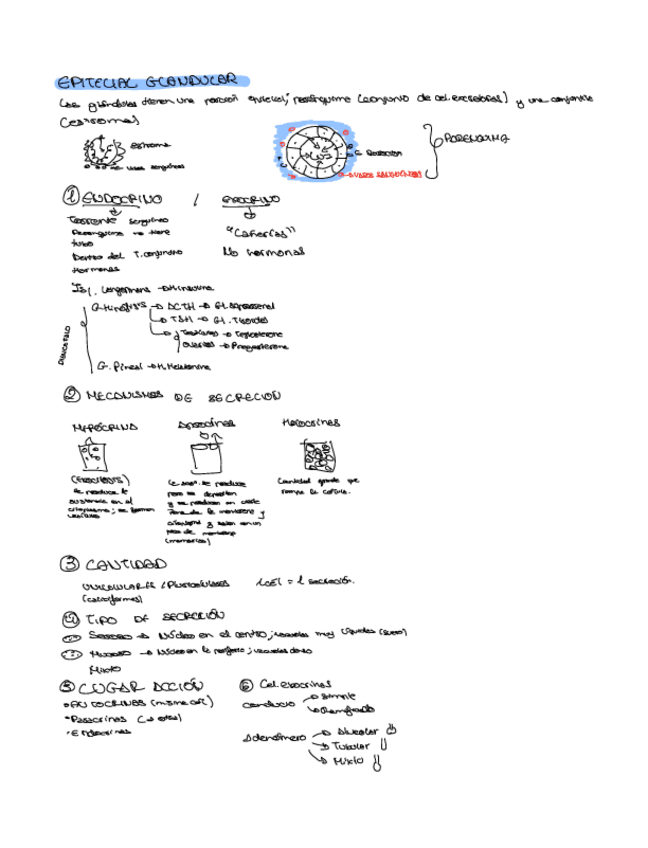 EPITELIAL GLANDULAR
Las glándulas tienen una porción epitelial; parénquima (conjunto de cel. excretoras) y una conjuntiva
(estroma)
estroma
vasos sanguíneos
LUZ
C. Secretoras
VASOS SANGUÍNEOS
PARENQUIMA
① ENDOCRINO / EXOCRINO
Torrente sanguíneo
Parenquima no tiene
tubo
Dentro del T. conjuntivo
Hormonas
"Cañerías"
No hormonas
Isl. Langerhans → H. insulina
G. Hipófisis → ACTH → Gl. Suprarrenal
→ TSH → Gl. Tiroides
Testículos → Testosterona
Ovarios → Progesterona
G. Pineal → H. Melatonina
② MECANISMOS DE SECRECIÓN
MERÓCRINO
Se produce la
sustancia en el
citoplasmo; se forman
vesículas
Apocrinas
se produce
y
citoplasma y salen en un
de membrana
(mamarias)
Holocrinas
Cantidad grande que
rompe la célula.
③ CANTIDAD
UNICELULARES / Pluricelulares 1 cél = 1 secreción.
(caliciformes)
④ TIPO DE SECRECIÓN
Seroso → Núcleo en el centro; vacuolas muy líquidas (suero)
Mucoso → Núcleo en la periferia; vacuolas
Mixto
⑤ LUGAR ACCIÓN
• AUTOCRINAS (misma cél.)
• Paracrinas (→ otras)
• Endocrinas
⑥ Cel. exocrinas
conducto → Simple
→ Ramificado
Adenómero → Alveolar
→ Tubular
→ Mixto